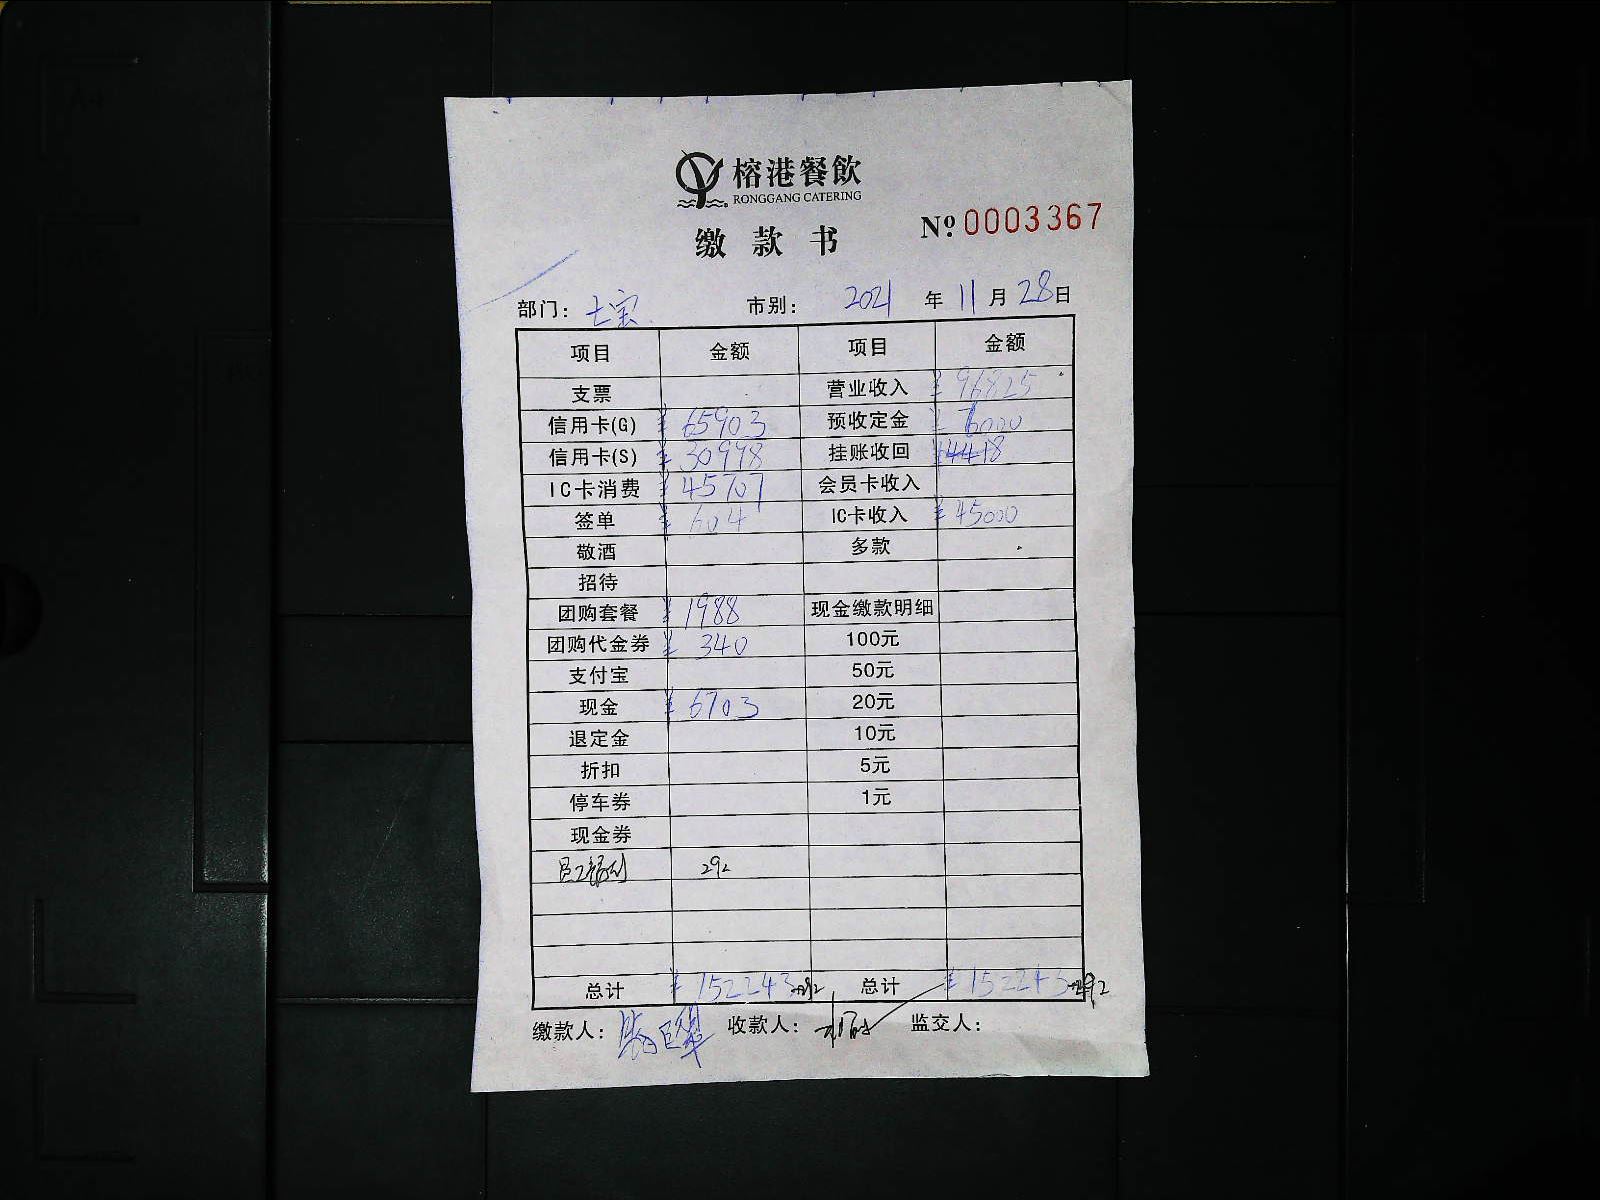 榕港餐飲
RONGGANG CATERING
缴款书
Nº 0003367
部门: 七宝 市别: 2021 年 11 月 28 日
项目 金额 项目 金额
支票 营业收入 ¥96825
信用卡(G) ¥65903 预收定金 ¥6000
信用卡(S) ¥30998 挂账收回 ¥4418
IC卡消费 ¥45707 会员卡收入
签单 ¥604 IC卡收入 ¥45000
敬酒 多款
招待
团购套餐 ¥1988 现金缴款明细
团购代金券 ¥340 100元
支付宝 50元
现金 ¥6703 20元
退定金 10元
折扣 5元
停车券 1元
现金券
员工福利 292
总计 ¥152243+292 总计 ¥152243+292
缴款人: 收款人: 监交人: